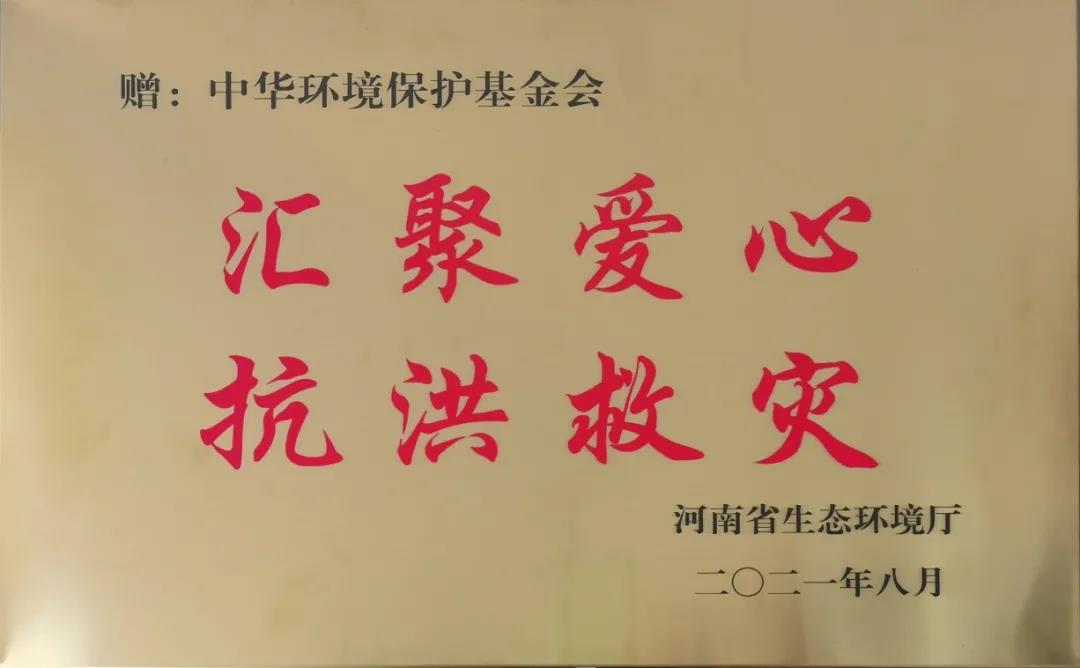 赠：中华环境保护基金会
汇聚爱心
抗洪救灾
河南省生态环境厅
二〇二一年八月